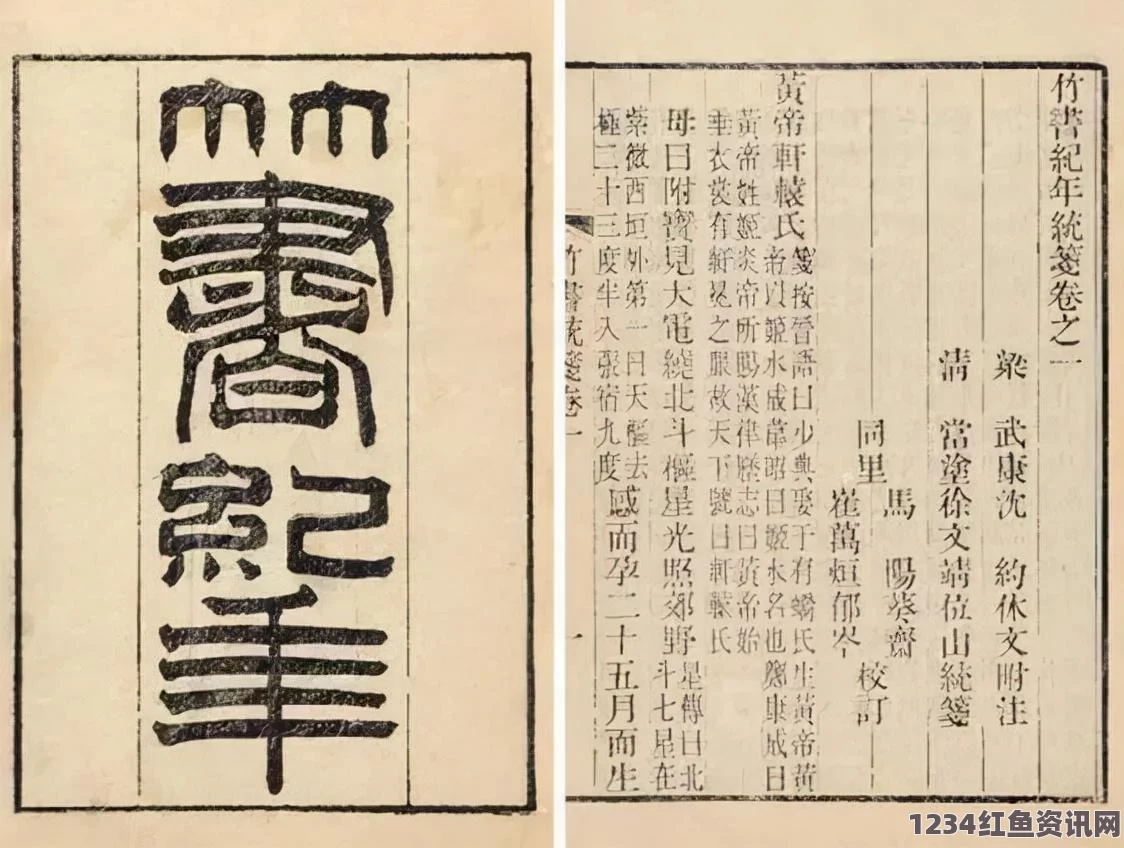 竹書紀年
竹書紀年統箋卷之一
梁 武康沈 約休文附注
清 當塗徐文靖位山統箋
同里 馬 陽葵齋
崔萬烜郁岑 校訂
黃帝軒轅氏 箋按晉語曰少典娶于有蟜氏生黃帝黃
帝以姬水成韋昭曰姬水名也鄭康成曰
黃帝姓姬炎帝所賜漢律歷志曰黃帝始
垂衣裳有軒冕之服故天下號曰軒轅氏
母曰附寶見大電繞北斗樞星光照郊野 星傳曰北
斗七星在
紫微西垣外第一曰天樞去
極二十三度半入張宿九度 感而孕二十五月而生
竹書統箋卷一 一
1234红鱼资讯网